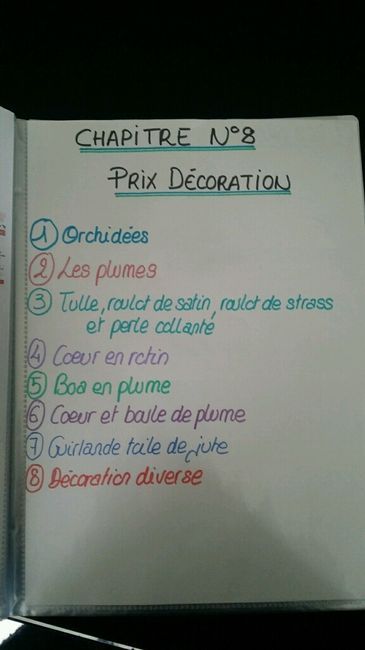 CHAPITRE N°8
PRIX DÉCORATION
1 Orchidées
2 Les plumes
3 Tulle, roulot de satin, roulot de strass
et perle collante
4 Coeur en rotin
5 Boa en plume
6 Coeur et boule de plume
7 Guirlande toile de jute
8 Décoration diverse